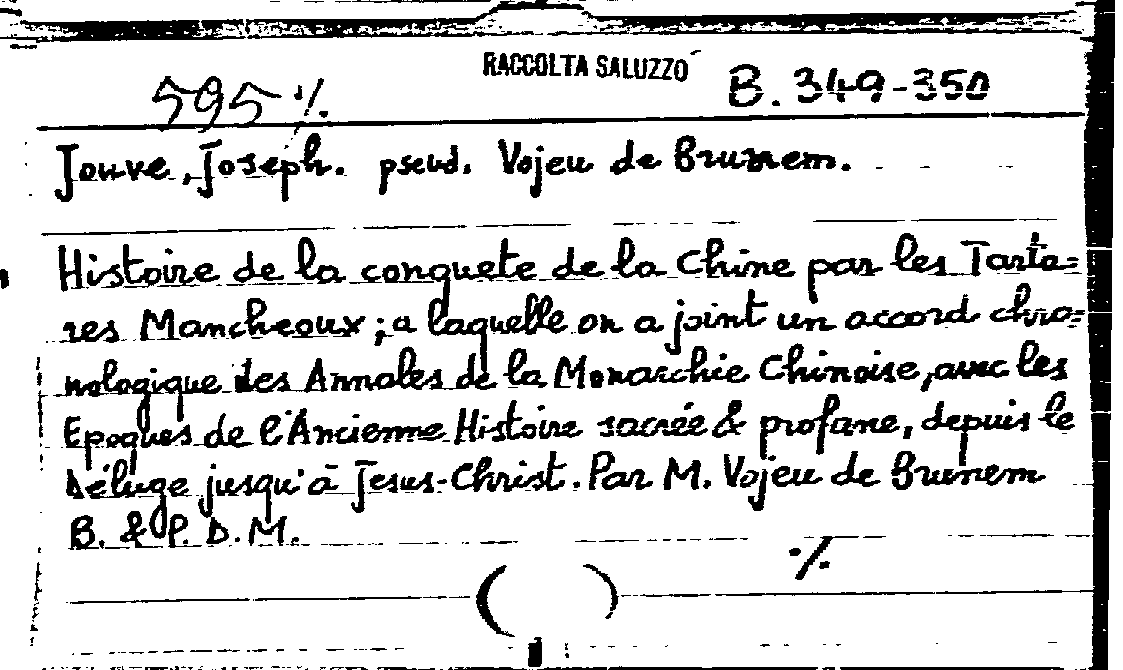 RACCOLTA SALUZZO
595 ·/. B. 349-350
Jouve, Joseph. pseud. Vojeu de Brunem.
Histoire de la conquete de la Chine par les Tarta=
res Mancheoux ; a laquelle on a joint un accord chro=
nologique des Annales de la Monarchie Chinoise, avec les
Epoques de l'Ancienne Histoire sacrée & profane, depuis le
Déluge jusqu'à Jesus-Christ. Par M. Vojeu de Brunem
B. & P. D. M.
·/.